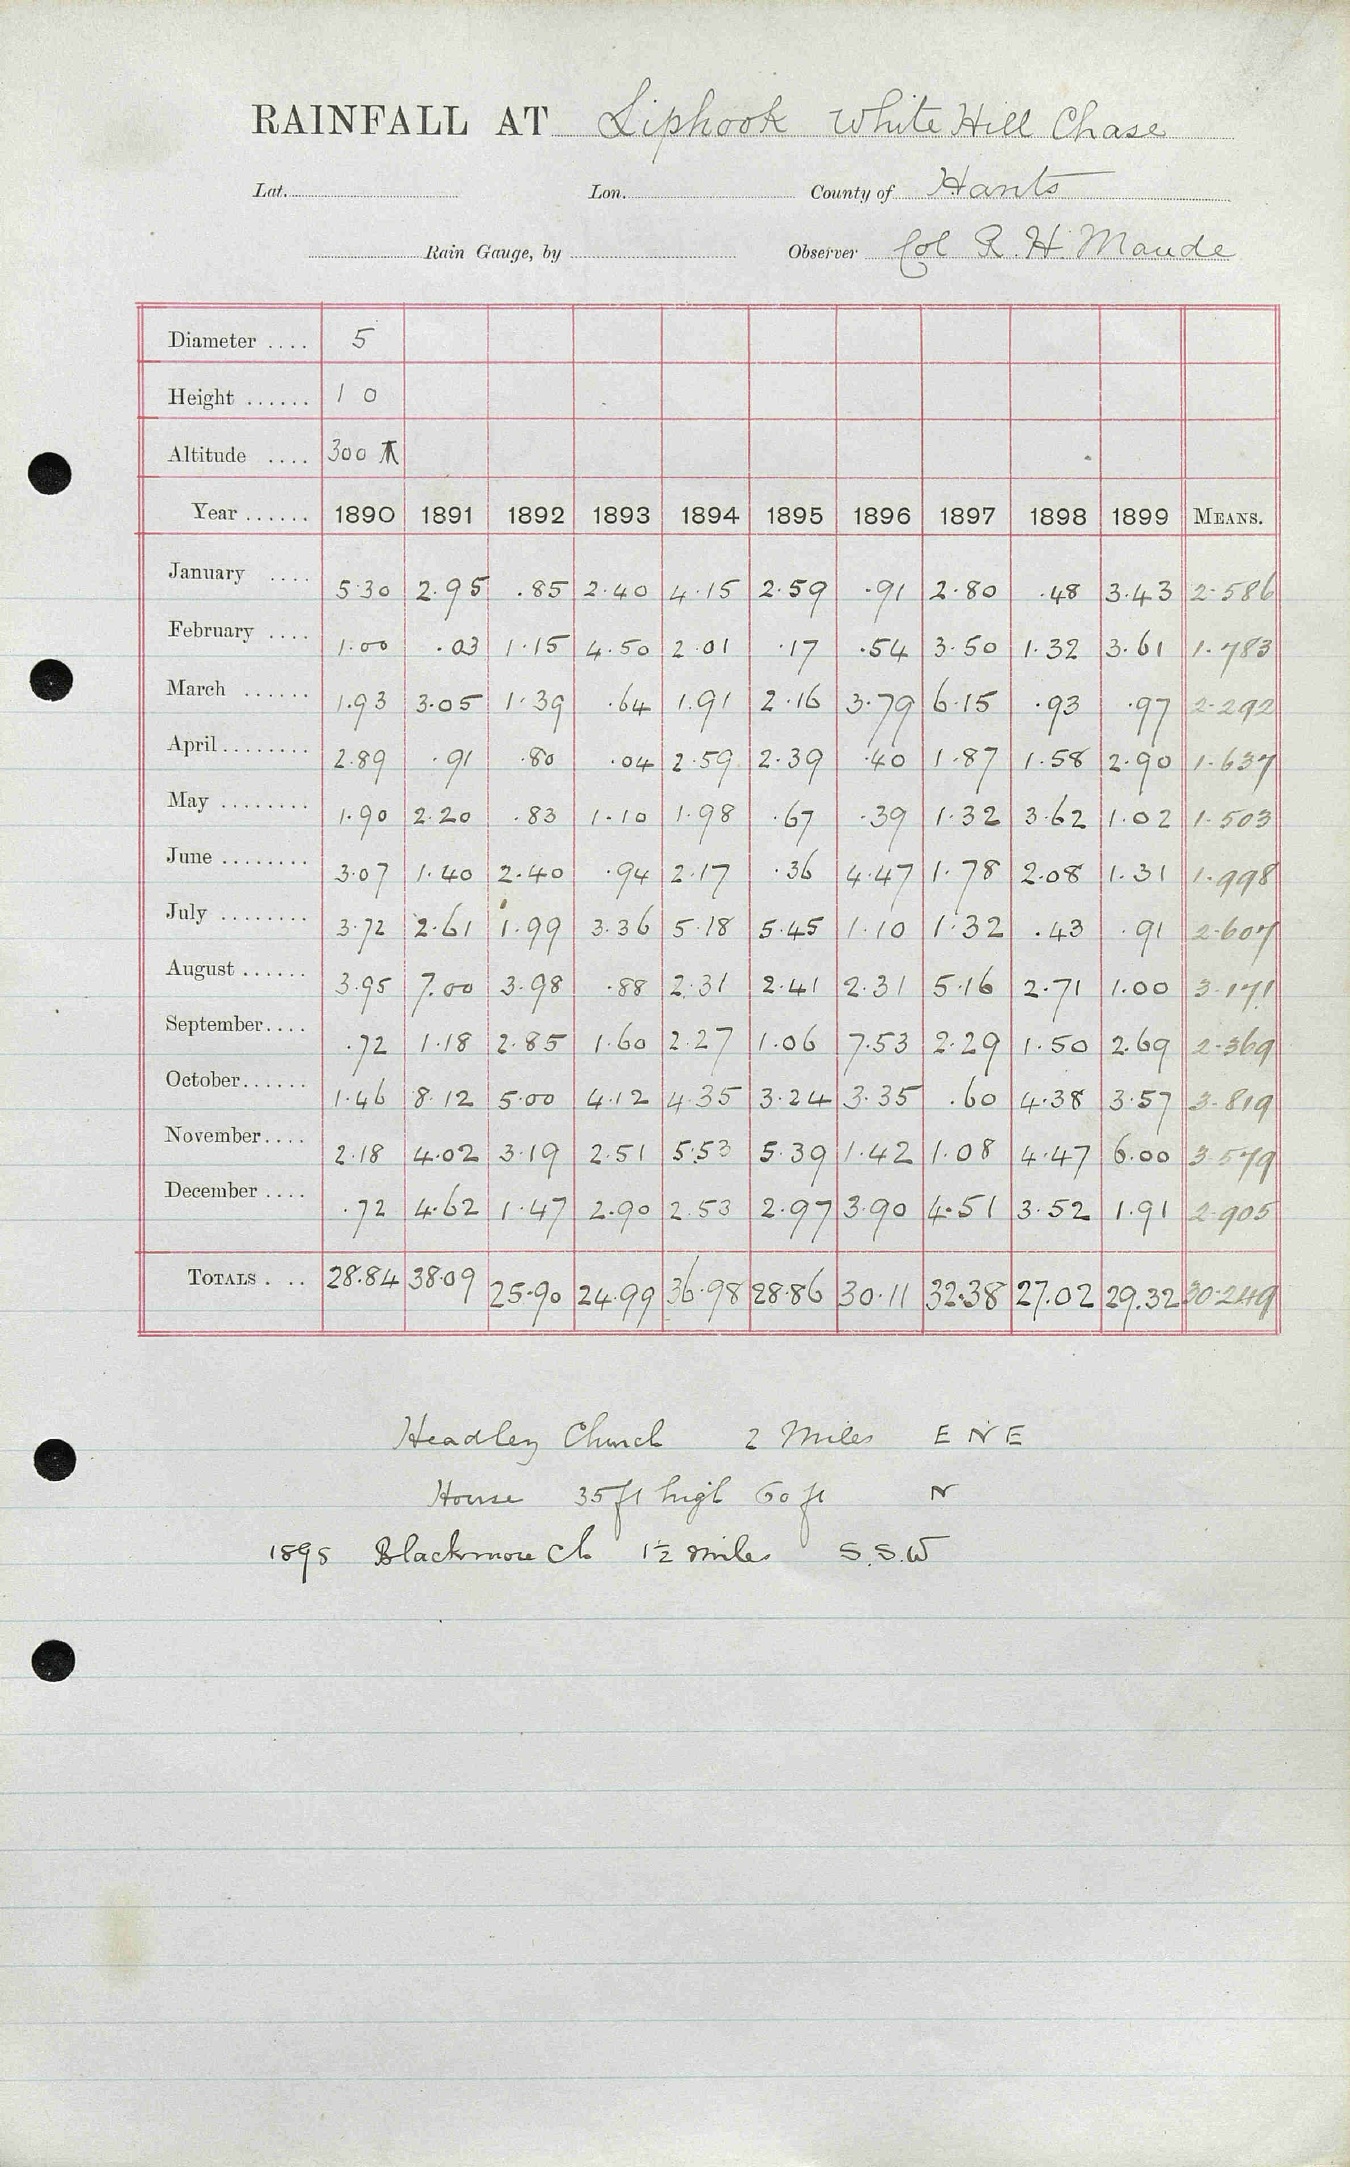 RAINFALL AT Liphook White Hill Chase
Lat. Lon. County of Hants
Rain Gauge, by Observer Col R. H. Maude
Diameter .... 5
Height ...... 1 0
Altitude .... 300
Year ...... 1890 1891 1892 1893 1894 1895 1896 1897 1898 1899 MEANS.
January .... 5.30 2.95 .85 2.40 4.15 2.59 .91 2.80 .48 3.43 2.586
February .... 1.00 .03 1.15 4.50 2.01 .17 .54 3.50 1.32 3.61 1.783
March ...... 1.93 3.05 1.39 .64 1.91 2.16 3.79 6.15 .93 .97 2.292
April ........ 2.89 .91 .80 .04 2.59 2.39 .40 1.87 1.58 2.90 1.637
May ........ 1.90 2.20 .83 1.10 1.98 .67 .39 1.32 3.62 1.02 1.503
June ........ 3.07 1.40 2.40 .94 2.17 .36 4.47 1.78 2.08 1.31 1.998
July ........ 3.72 2.61 1.99 3.36 5.18 5.45 1.10 1.32 .43 .91 2.607
August ...... 3.95 7.00 3.98 .88 2.31 2.41 2.31 5.16 2.71 1.00 3.171
September .... .72 1.18 2.85 1.60 2.27 1.06 7.53 2.29 1.50 2.69 2.369
October ...... 1.46 8.12 5.00 4.12 4.35 3.24 3.35 .60 4.38 3.57 3.819
November .... 2.18 4.02 3.19 2.51 5.53 5.39 1.42 1.08 4.47 6.00 3.579
December .... .72 4.62 1.47 2.90 2.53 2.97 3.90 4.51 3.52 1.91 2.905
TOTALS . .. 28.84 38.09 25.90 24.99 36.98 28.86 30.11 32.38 27.02 29.32 30.249
Headley Church 2 Miles E N E
House 35 ft high 60 ft N
1895 Blackmore Ch 1½ miles S.S.W